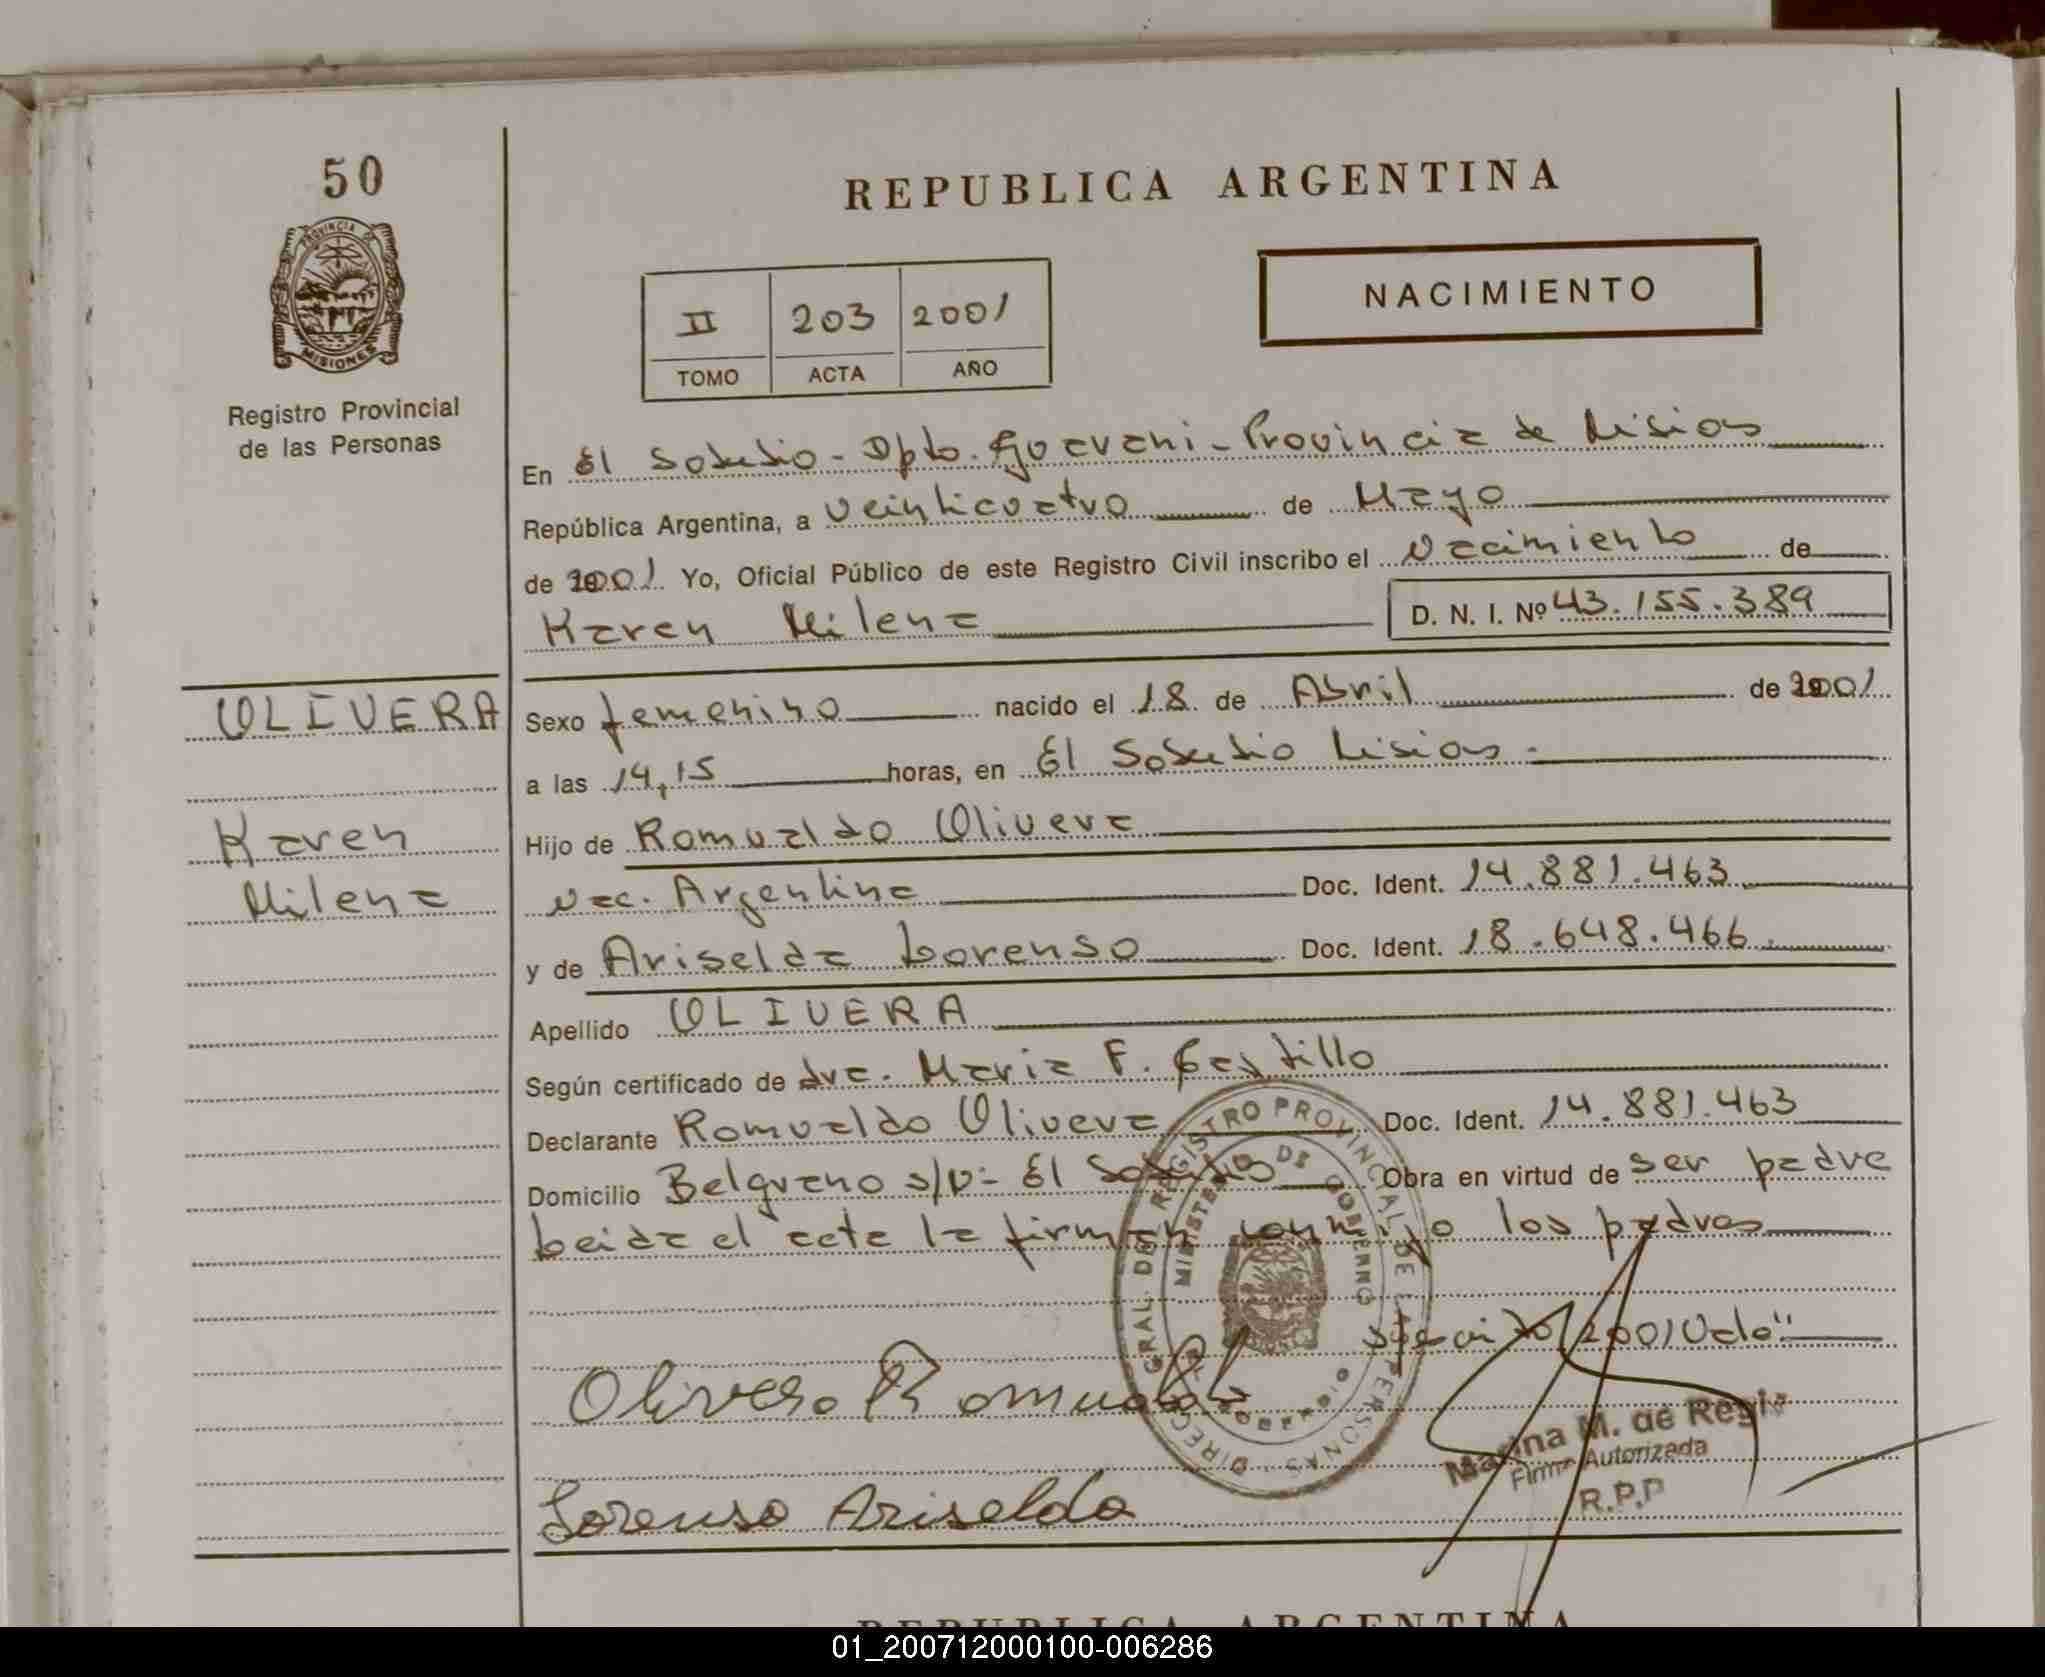 50
PROVINCIA DE
MISIONES
Registro Provincial
de las Personas
REPUBLICA ARGENTINA
NACIMIENTO
II 203 2001
TOMO ACTA AÑO
En El Soberbio - Dpto. Guarani - Provincia de Misiones
República Argentina, a veinticuatro de Mayo
de 2001 Yo, Oficial Público de este Registro Civil inscribo el Nacimiento de
Karen Milena D. N. I. Nº 43.155.389
OLIVERA
Karen
Milena
Sexo femenino nacido el 18 de Abril de 2001
a las 14,15 horas, en El Soberbio Misiones.
Hijo de Romualdo Olivera
Nac. Argentina Doc. Ident. 14.881.463
y de Ariselda Lorenso Doc. Ident. 18.648.466
Apellido OLIVERA
Según certificado de dra. Maria F. Castillo
Declarante Romualdo Olivera Doc. Ident. 14.881.463
Domicilio Belgrano s/Nº El Soberbio Obra en virtud de ser padre
Leida el acta la firman conmigo los padres
2001 Vale"
Olivera Romualdo
Lorenso Ariselda
DIRECC. GRAL. DEL REGISTRO PROVINCIAL DE LAS PERSONAS
MINISTERIO DE GOBIERNO
EL SOBERBIO
Marina M. de Regis
Firma Autorizada
R.P.P
REPUBLICA ARGENTINA
01_200712000100-006286